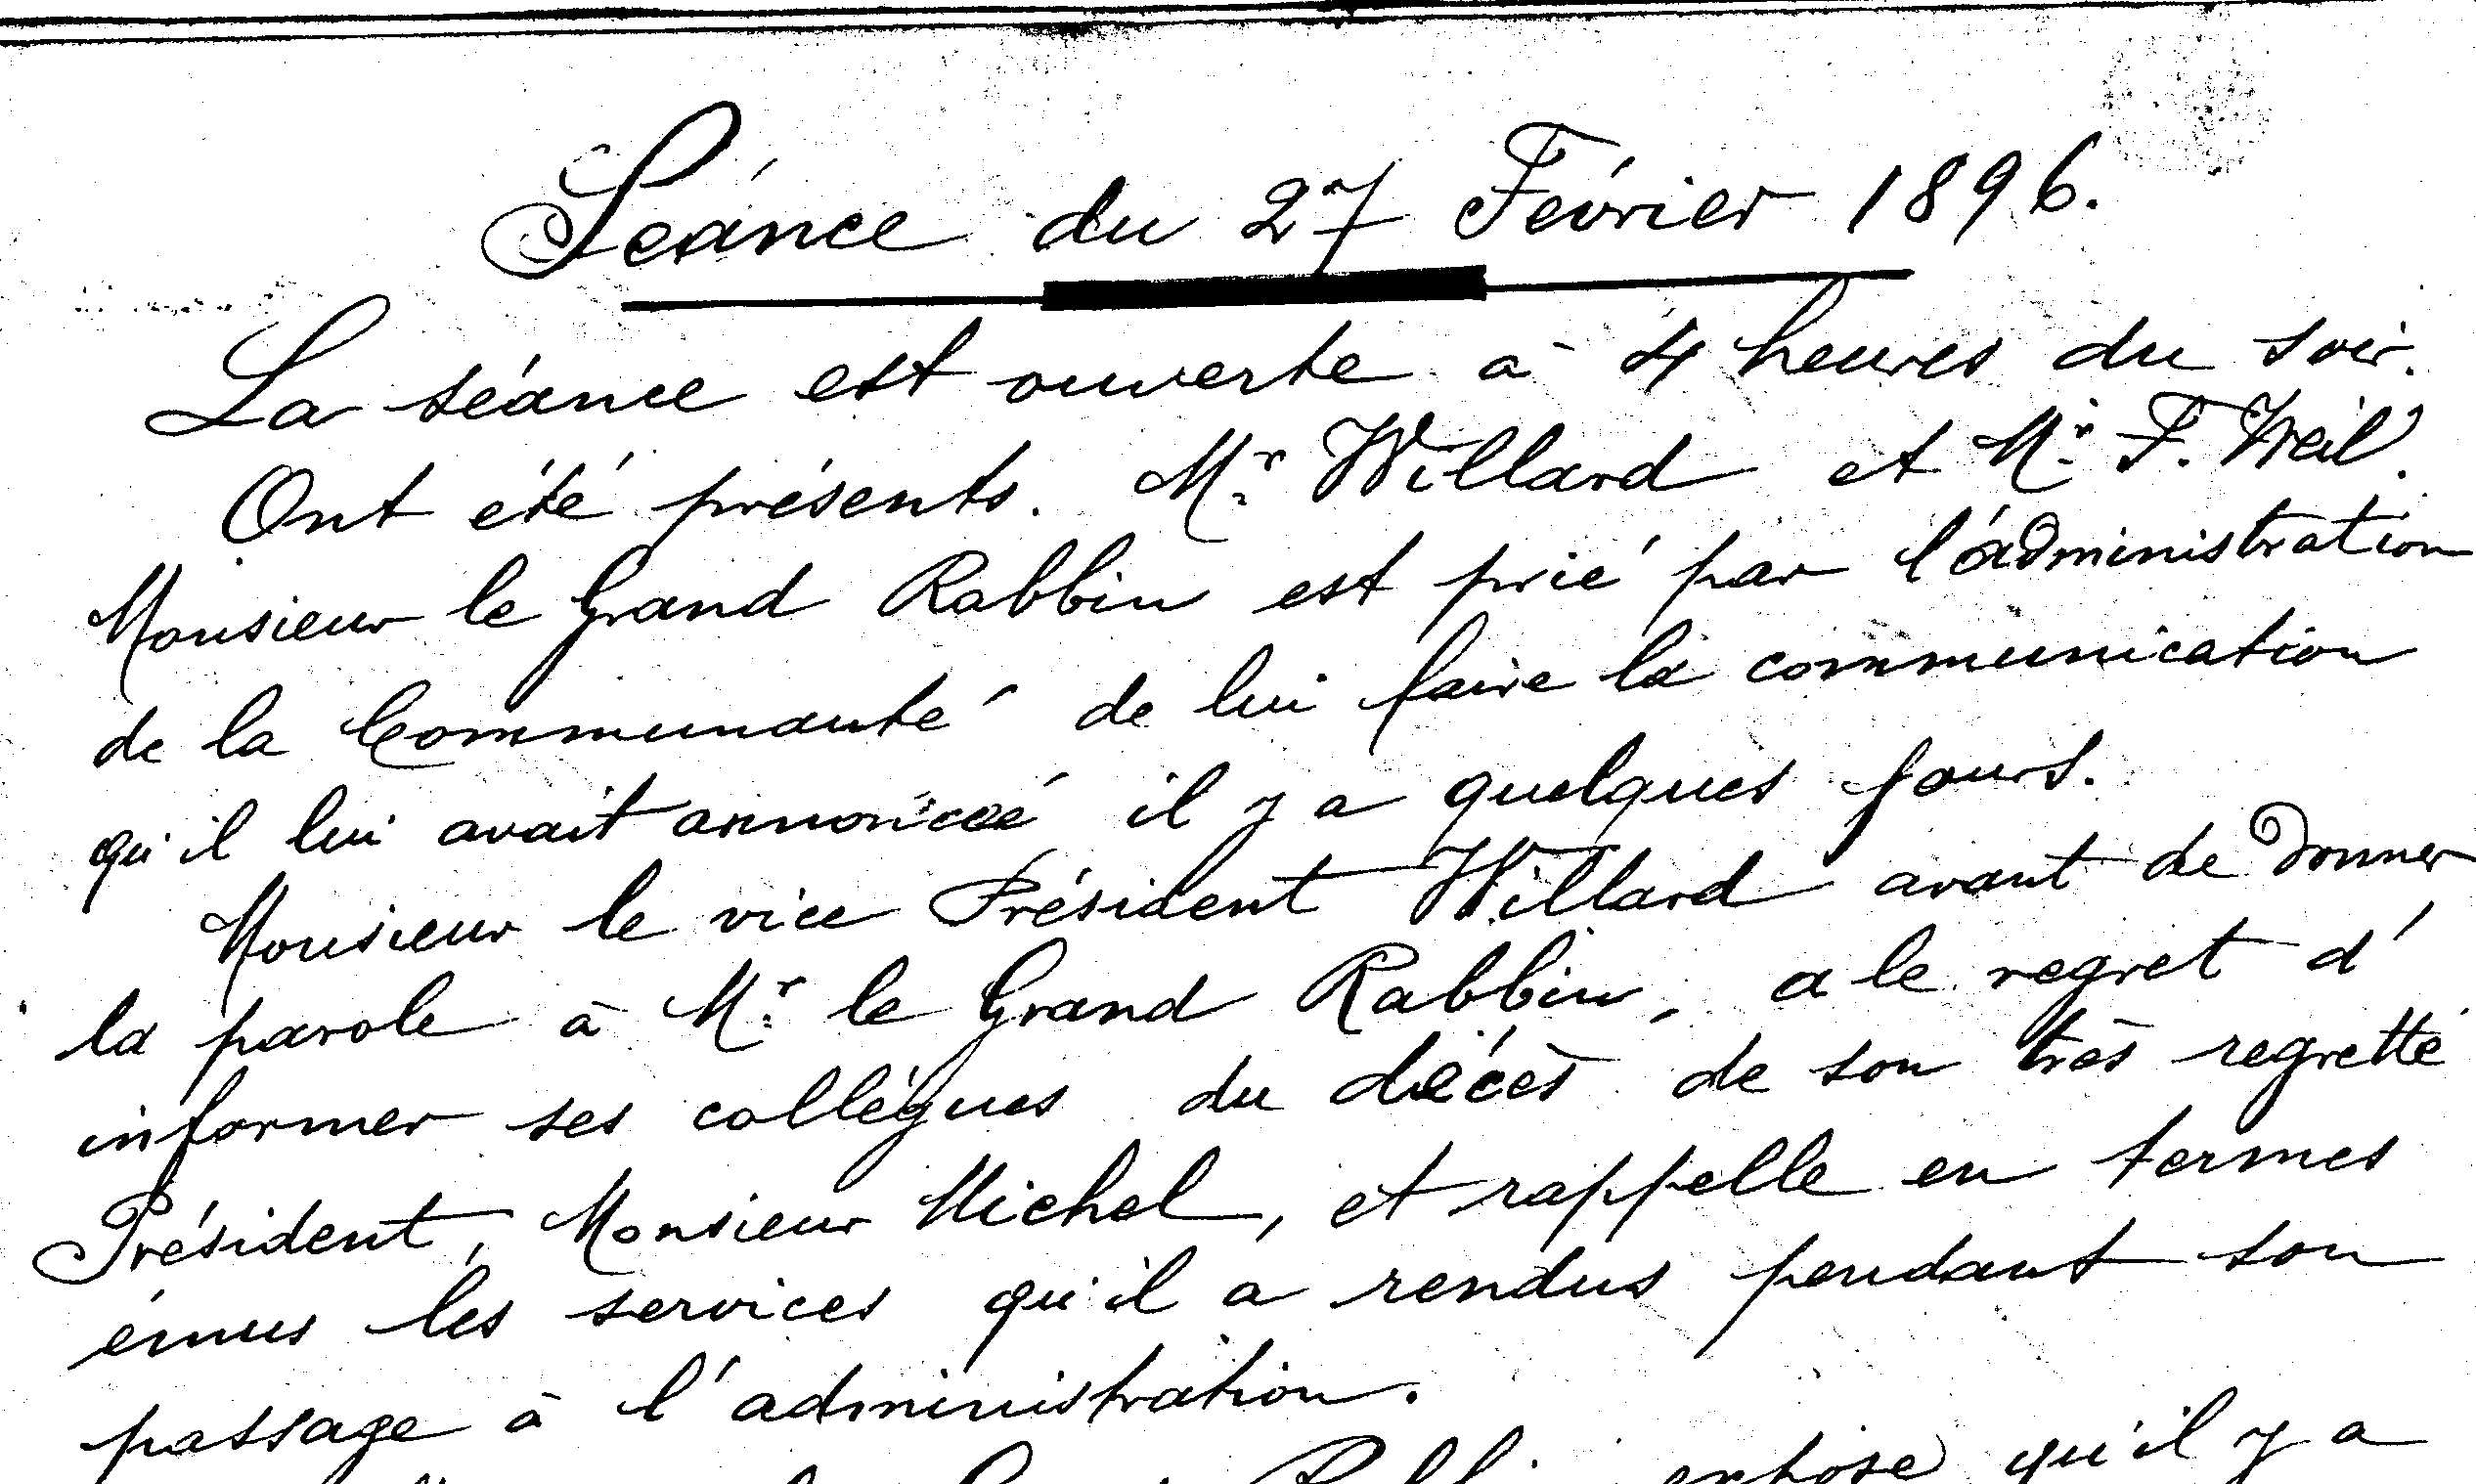 Séance du 27 Février 1896.
La séance est ouverte à 4 heures du soir.
Ont été présents. Mr Willard et Mr F. Weil.
Monsieur le Grand Rabbin est prié par l'administration
de la Communauté de lui faire la communication
qu'il lui avait annoncée il y a quelques jours.
Monsieur le vice Président Willard avant de donner
la parole à Mr le Grand Rabbin, a le regret d'
informer ses collègues du décès de son très regretté
Président, Monsieur Michel, et rappelle en termes
émus les services qu'il a rendus pendant son
passage à l'administration.
Rabbin expose qu'il y a